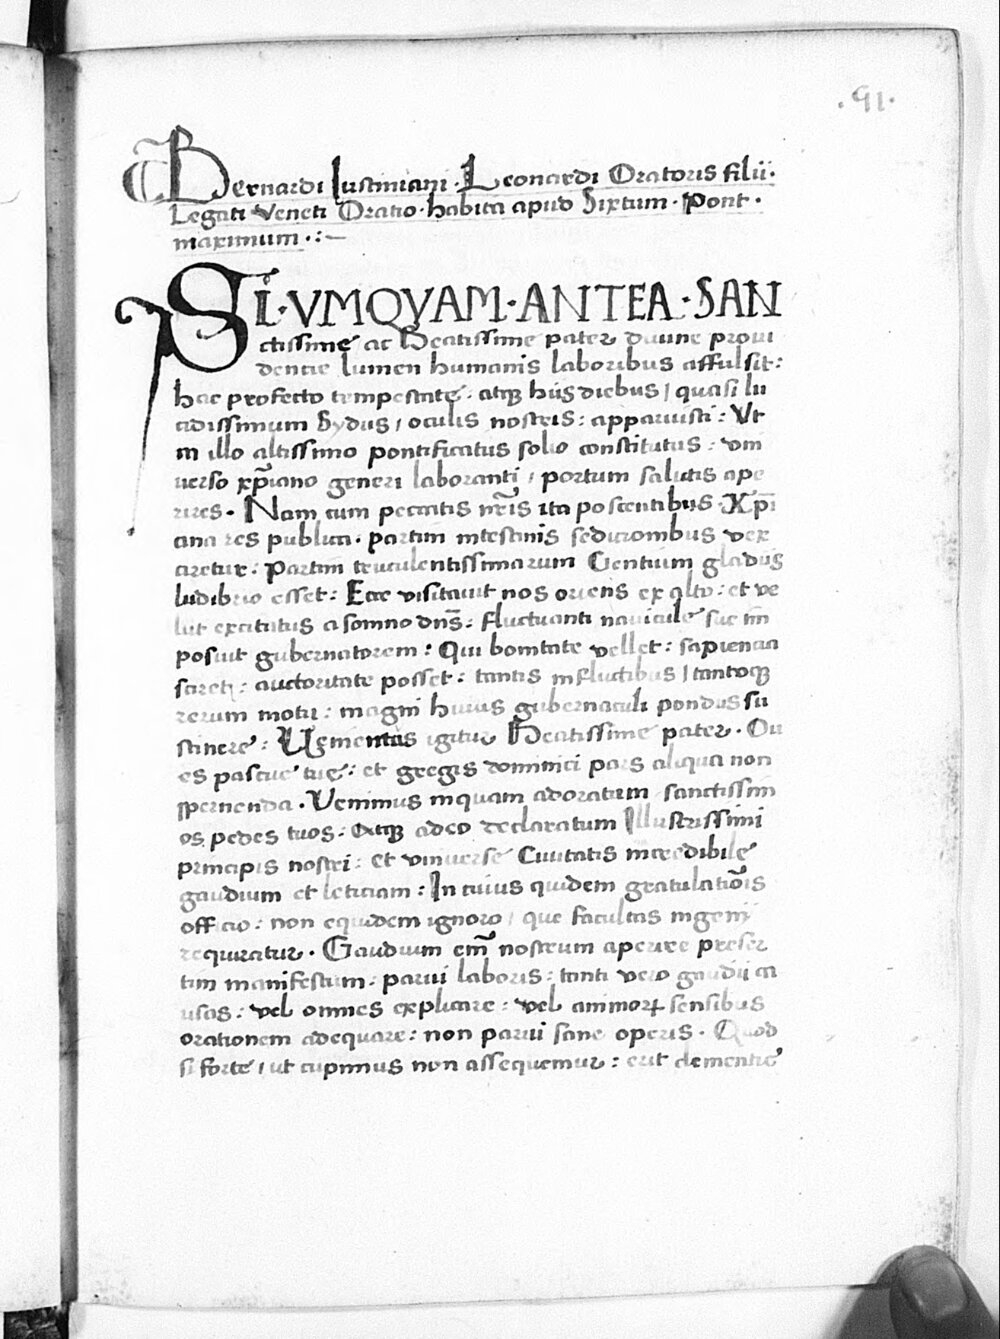 .91.
Bernardi Iustiniani. Leonardi Oratoris filii.
Legati Veneti Oratio. habita apud Sixtum. Pont.
maximum.:~
SI. VMQVAM. ANTEA. SAN
ctissime ac Beatissime pater diuine proui
dentie lumen humanis laboribus affulsit:
hac profecto tempestate: atqꝫ hijs diebus / quasi lu
cidissimum Sydus / oculis nostris: apparuisti: Vt
in illo altissimo pontificatus solio constitutus: vni
uerso xp̄iano generi laboranti / portum salutis ape
rires. Nam cum peccatis nr̄is ita poscentibus. Xp̄i
ana res publica. partim intestinis sedicionibus vex
aretur: Partim truculentissimarum Gentium gladijs
ludibrio esset: Ecce visitauit nos oriens ex alto: et ve
lut excitatus a somno dn̄s: fluctuanti nauicule sue im
posuit gubernatorem: Qui bonitate vellet: sapiencia
sciret: auctoritate posset: tantis in fluctibus / tantoqꝫ
rerum motu: magni huius gubernaculi pondus su
stinere: Clementiss igitur Beatissime pater. Ou
es pascue tue: et gregis dominici pars aliqua non
spernenda. Venimus inquam adoratum sanctissim
os pedes tuos: Atqꝫ adeo declaratum Illustrissimi
principis nostri: et vniuerse Ciuitatis incredibile
gaudium et leticiam: In cuius quidem gratulatiōis
officio: non equidem ignoro / que facultas ingenij
requiratur. Gaudium em̄ nostrum aperire preser
tim manifestum: parui laboris: tanti vero gaudii ca
usas: vel omnes explicare: vel animoꝝ sensibus
orationem adequare: non parui sane operis. Quod
si forte / ut cupimus non assequemur: erit clementie